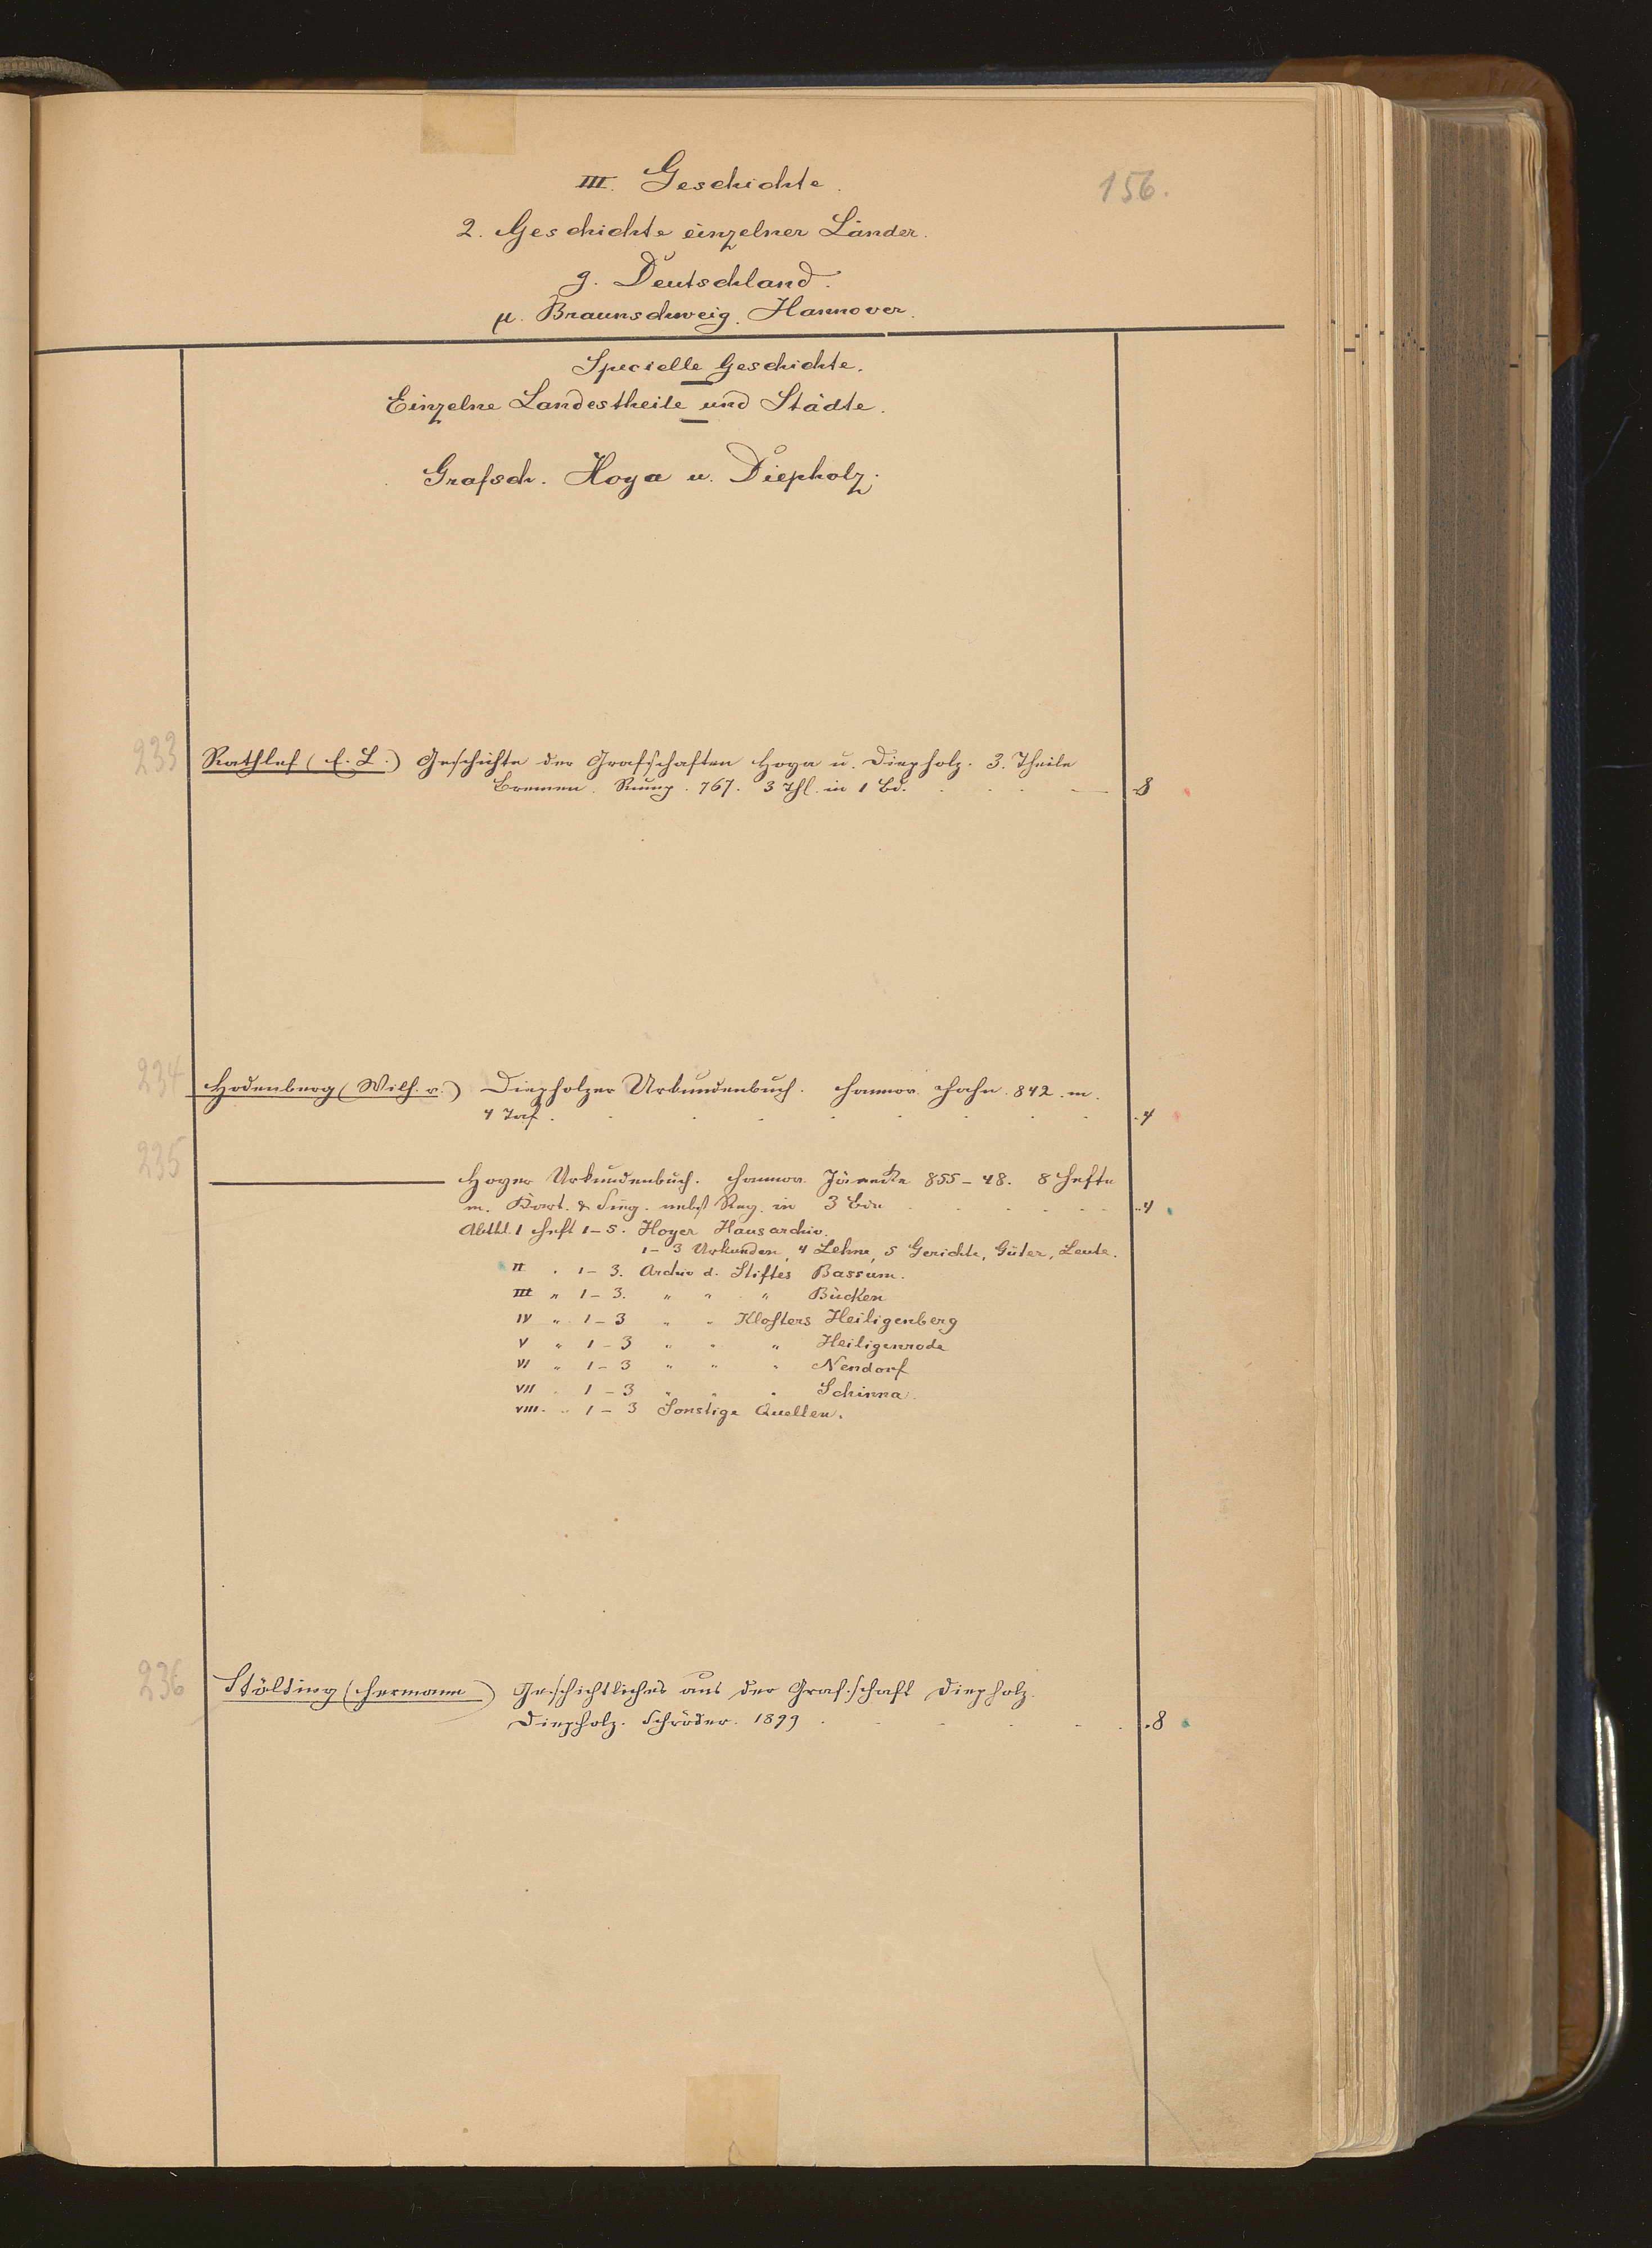 III. Geschichte.
156.
2. Geschichte einzelner Länder.
g. Deutschland.
μ. Braunschweig. Hannover.
Specielle Geschichte.
Einzelne Landestheile und Städte.
Grafsch. Hoya u. Diepholz.
233 Rathlef (E. L.) Geschichte der Grafschaften Hoya u. Diepholz. 3. Theile
Bremen. Rump. 767. 3 Thl. in 1 Bd. . . . . — 8
234 Hodenberg (Wilh. v.) Diepholzer Urkundenbuch. Hannov. Hahn. 842. m.
4 Taf. . . . . . . . . 4
235 ——— Hoyer Urkundenbuch. Hannov. Jänecke 855–48. 8 Hefte
m. Kart. & Sieg. nebst Reg. in 3 Bdn . . . . . . . 4
Abthl. 1 Heft 1–5. Hoyer Hausarchiv.
1–3 Urkunden, 4 Lehne, 5 Gerichte, Güter, Leute.
II " 1–3. Archiv d. Stiftes Bassum.
III " 1–3. " " " Bücken
IV " 1–3 " " Klosters Heiligenberg
V " 1–3 " " " Heiligenrode
VI " 1–3 " " " Nendorf
VII " 1–3 " " " Schinna.
VIII. " 1–3 Sonstige Quellen.
236 Stölting (Hermann) Geschichtliches aus der Grafschaft Diepholz.
Diepholz. Schröder. 1899 . . . . . . 8